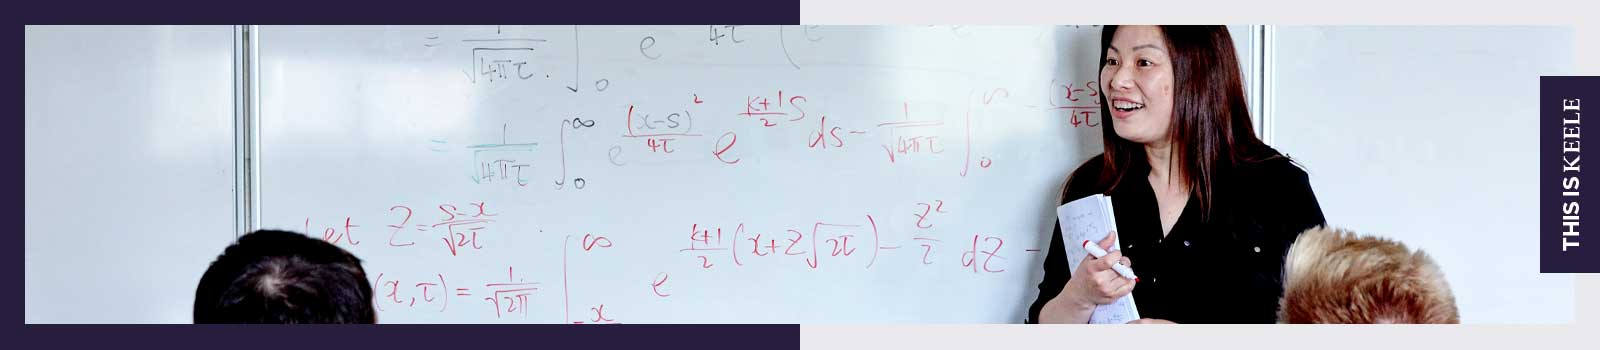 = 1/√4πτ ∫₀ e 4τ
= 1/√4πτ ∫₀^∞ e^((x-s)²/4τ) e^((k+1)/2 s) ds - 1/√4πτ ∫₀^∞ - (x-s 4τ
Let Z = (s-x)/√2τ
(x,τ) = 1/√2π ∫_-x^∞ e^((k+1)/2 (x+Z√2τ) - Z²/2) dZ -
THIS IS KEELE